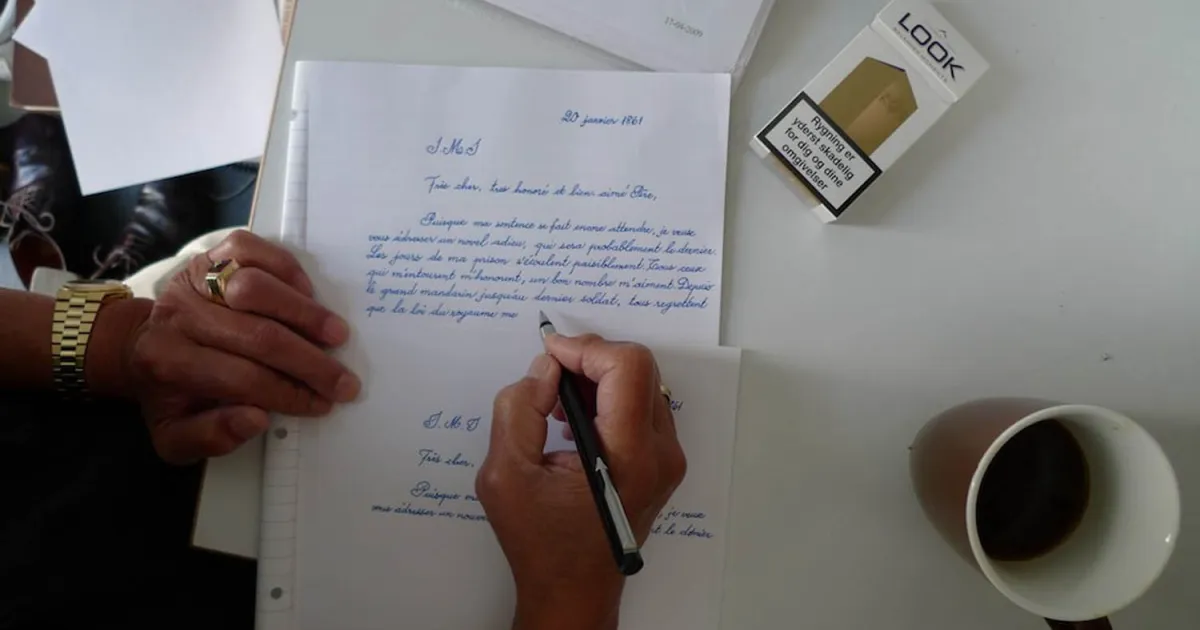 17-08-2009
LOOK
Rygning er
yderst skadelig
for dig og dine
omgivelser
20 janvier 1861
J.M.J
Très cher, très honoré et bien-aimé Père,
Puisque ma sentence se fait encore attendre, je veux
vous adresser un novel adieu, qui sera probablement le dernier.
Les jours de ma prison s'écoulent paisiblement. Tous ceux
qui m'entourent m'honorent, un bon nombre m'aiment. Depuis
le grand mandarin jusqu'au dernier soldat, tous regrettent
que la loi du royaume me
J.M.J
Très cher,
Puisque ma , je veux
vous adresser un nouve le dernier